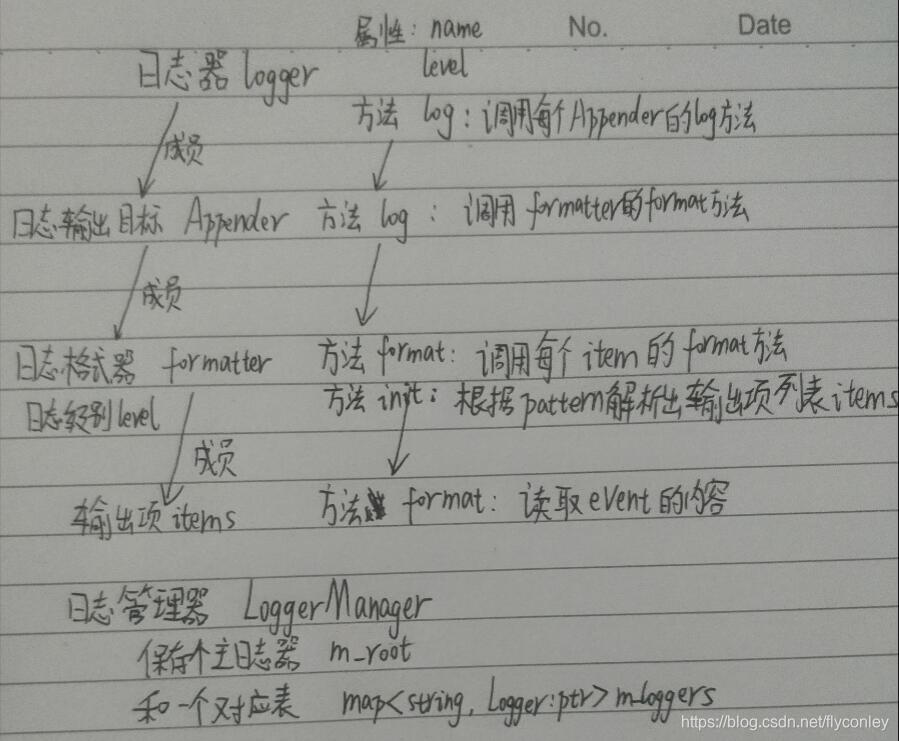 属性: name No. Date
日志器 logger level
方法 log: 调用每个Appender的log方法
成员
日志输出目标 Appender 方法 log: 调用 formatter的format方法
成员
日志格式器 formatter 方法 format: 调用每个 item 的 format方法
日志级别level 方法 init: 根据pattern解析出输出项列表items
成员
输出项 items 方法 format: 读取 event 的内容
日志管理器 LoggerManager
保存个主日志器 m_root
和一个对应表 map<string, Logger:ptr> m_loggers
https://blog.csdn.net/flyconley